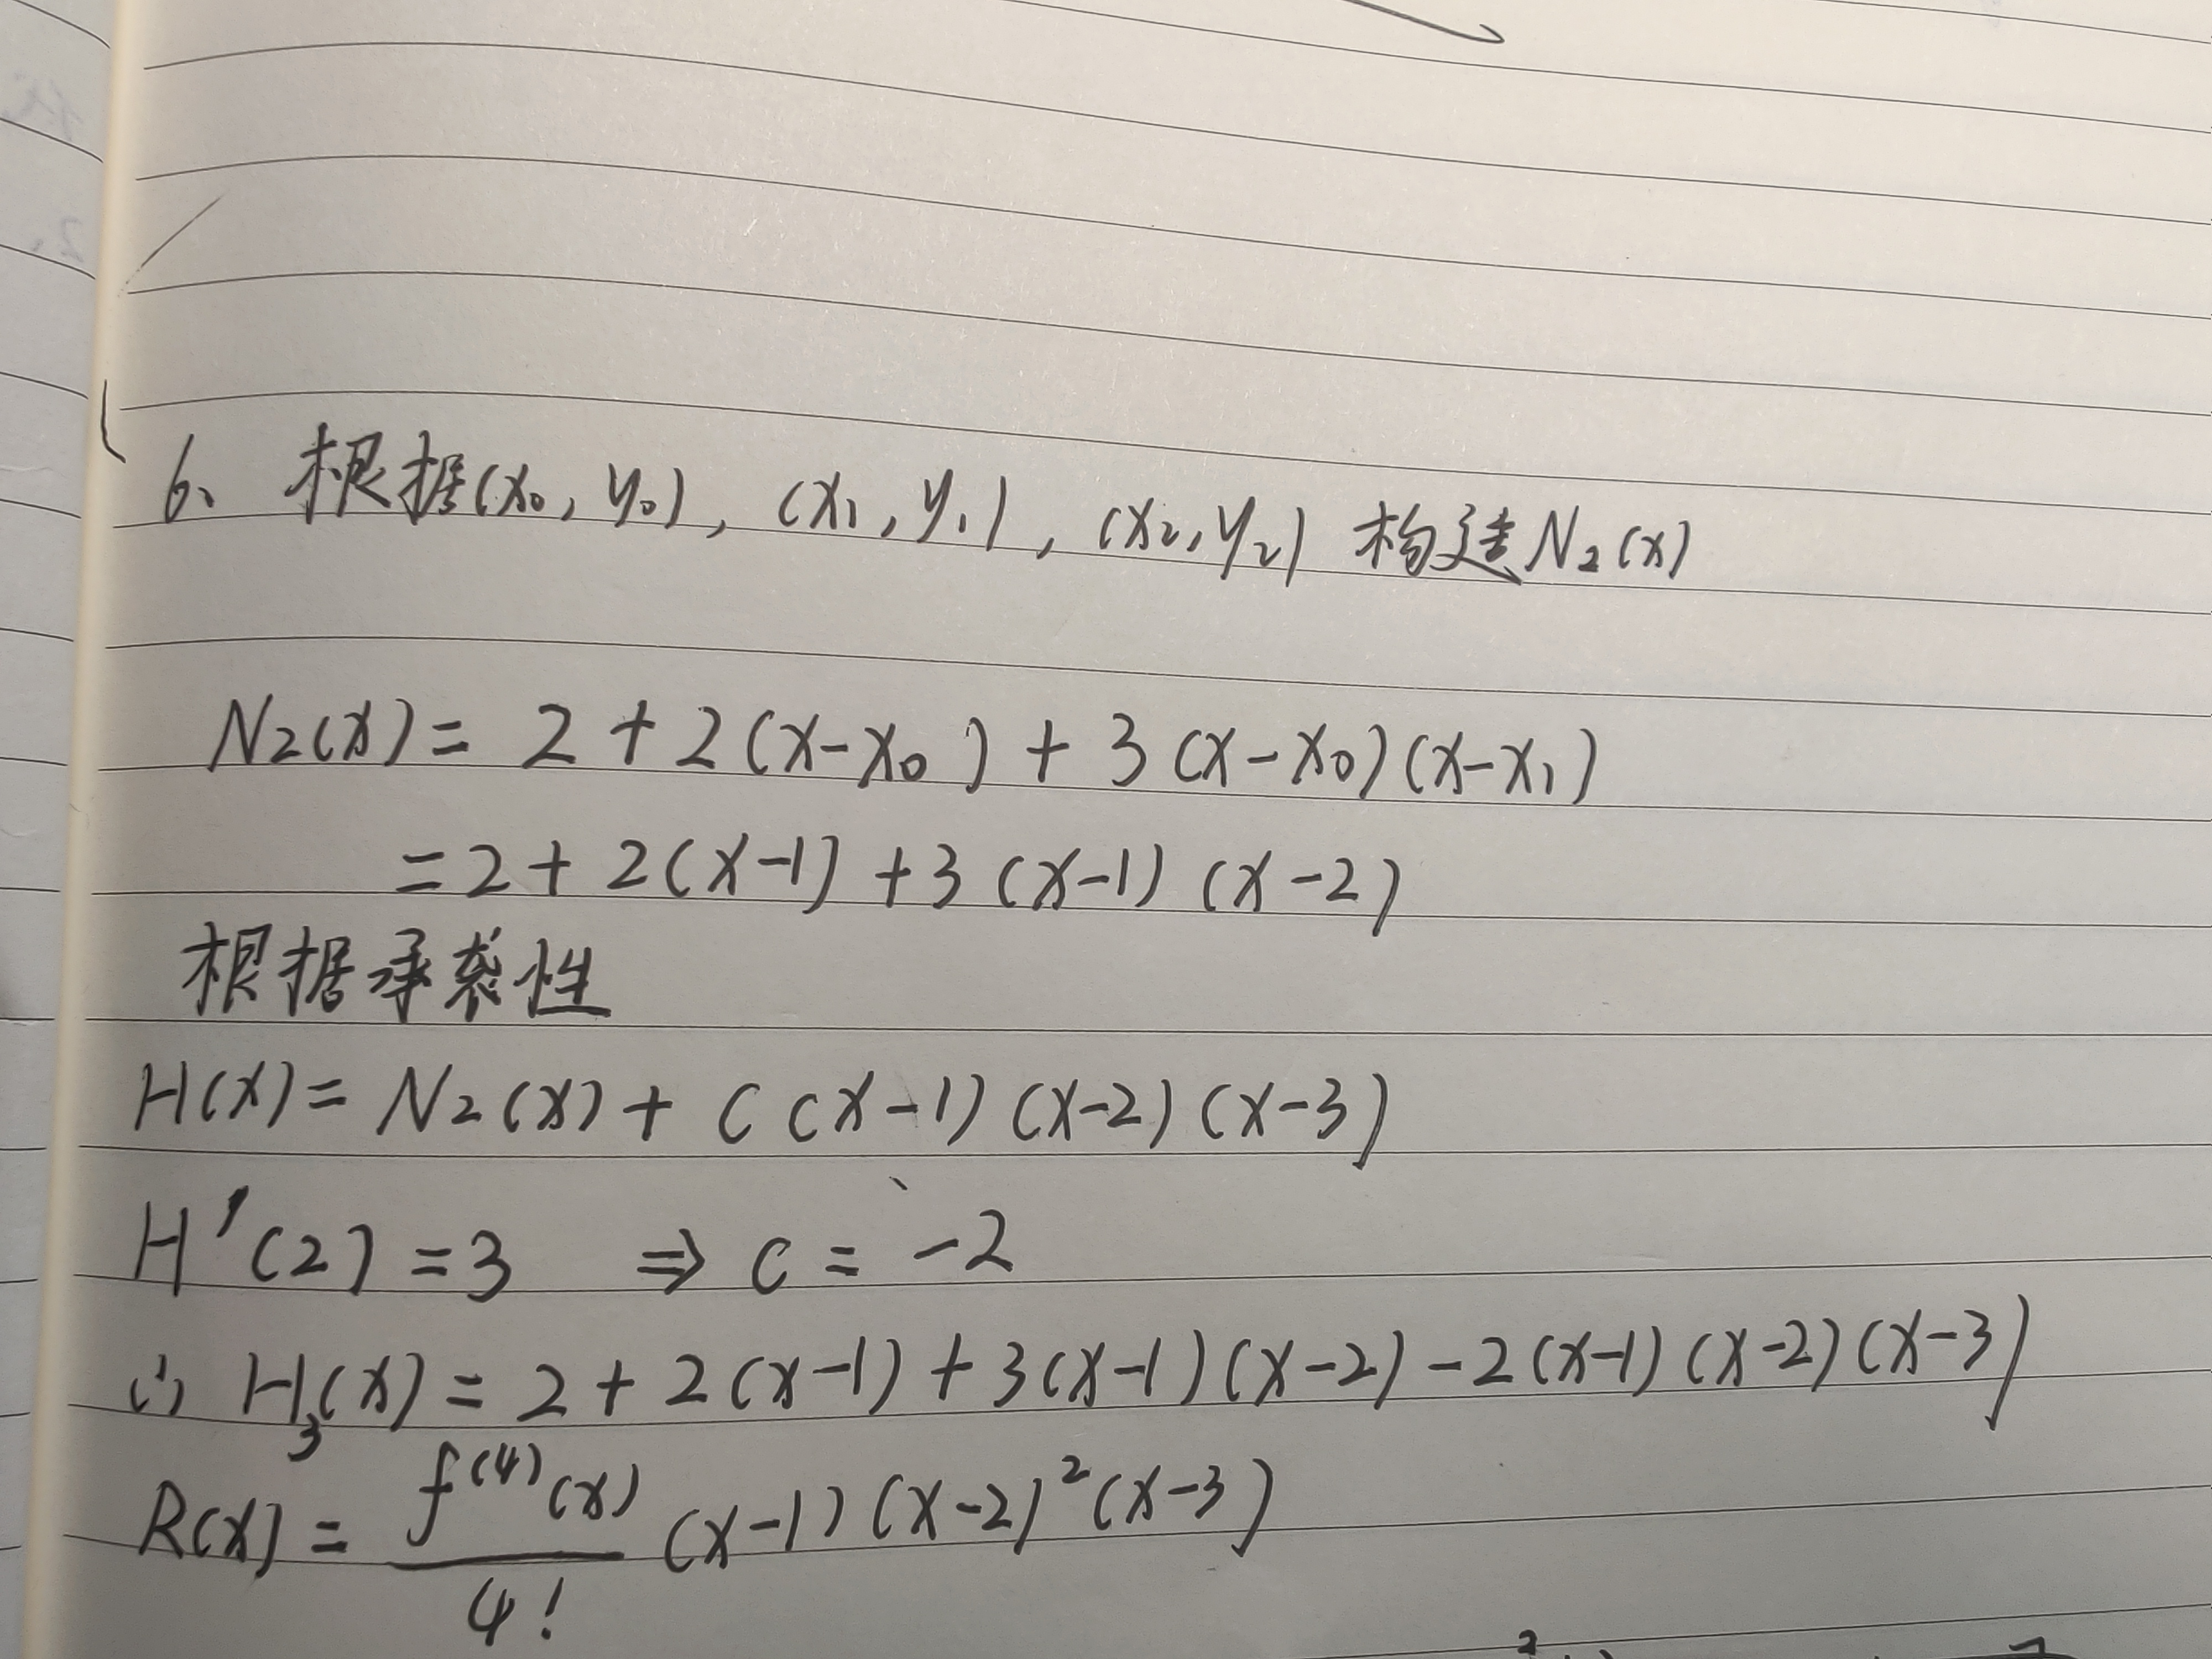 6、根据(x₀, y₀), (x₁, y₁), (x₂, y₂) 构造N₂(x)
N₂(x) = 2 + 2(x-x₀) + 3(x-x₀)(x-x₁)
= 2 + 2(x-1) + 3(x-1)(x-2)
根据承袭性
H(x) = N₂(x) + C(x-1)(x-2)(x-3)
H'(2) = 3 ⇒ C = -2
∴ H₃(x) = 2 + 2(x-1) + 3(x-1)(x-2) - 2(x-1)(x-2)(x-3)
R(x) = f⁽⁴⁾(x)/4! (x-1)(x-2)²(x-3)